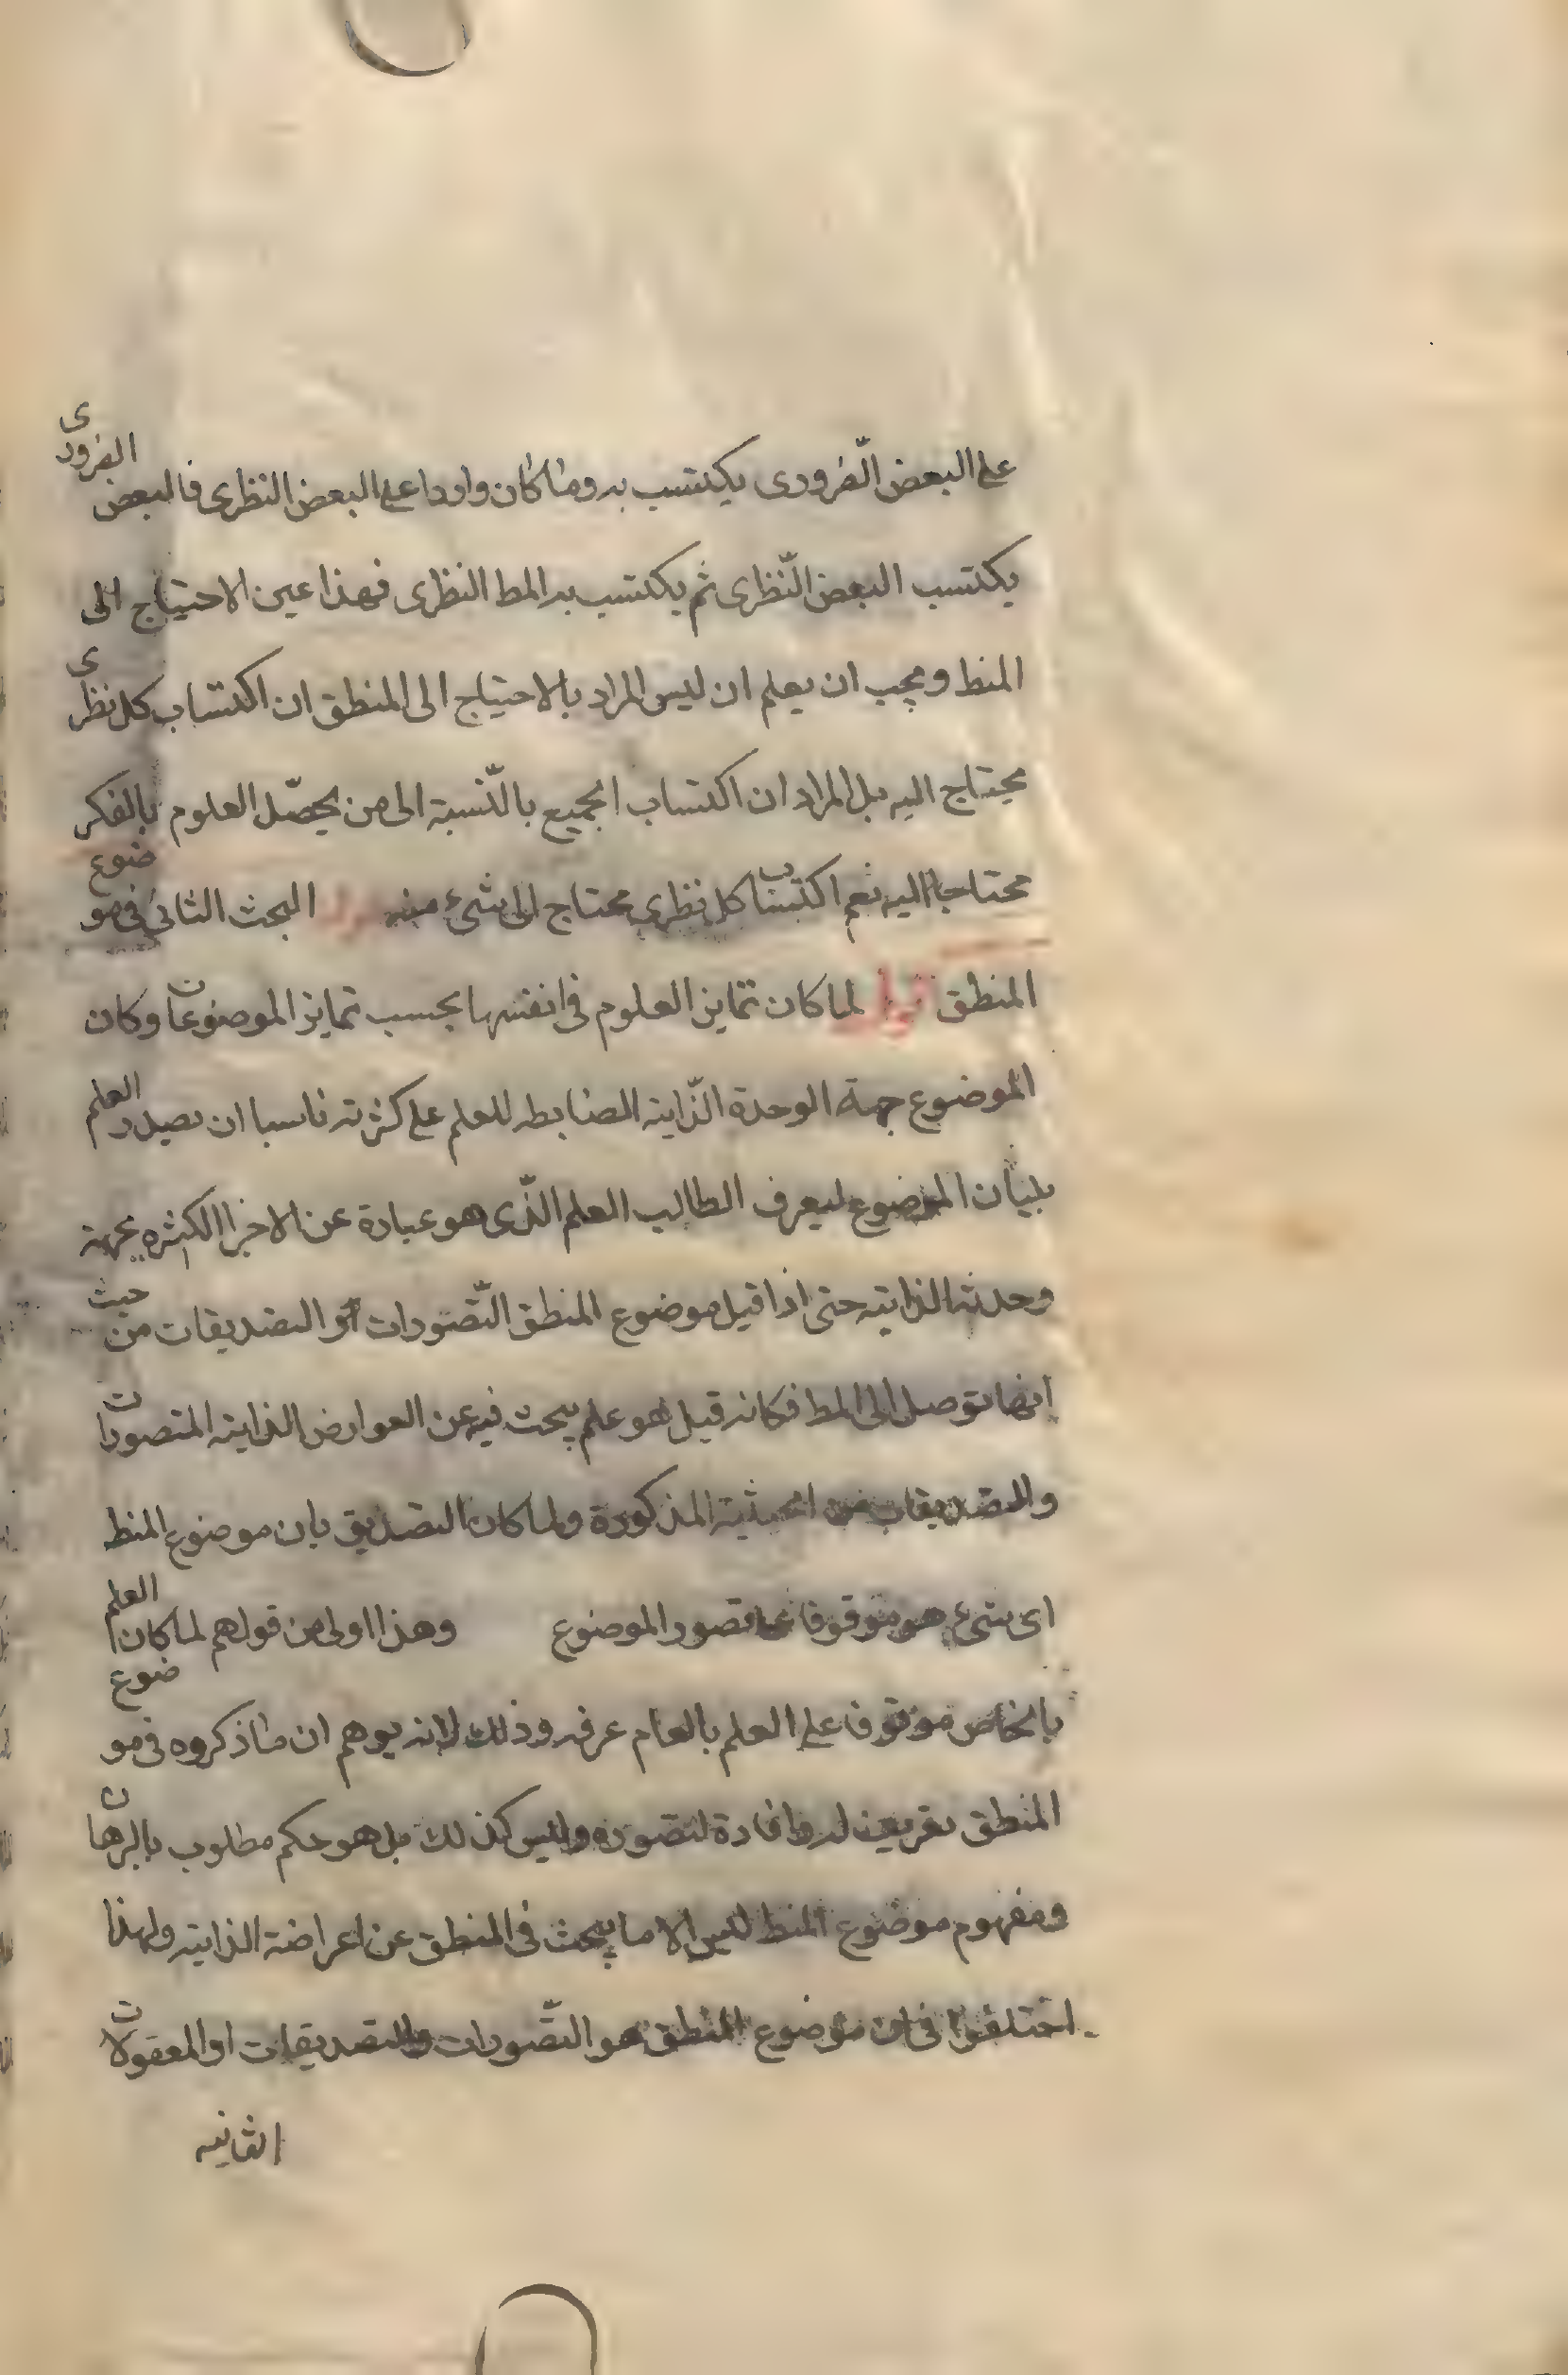 على البعض الضّرورى يكتسب به وما كان واردا على البعض النظرى فالبعض الضرورى
يكتسب البعض النّظرى ثم يكتسب به المط النظرى فهذا عين الاحتياج الى
المنط ويجب ان يعلم ان ليس المراد بالاحتياج الى المنطق ان اكتساب كل نظرى
يحتاج اليه بل المراد ان اكتساب الجميع بالنّسبة الى من يحصّل العلوم بالفكر
محتاجا اليه نعم اكتساب كل نظرى محتاج الى شىء منه البحث الثانى فى موضوع
المنطق اقول لما كان تمايز العلوم فى انفسها بحسب تمايز الموضوعات وكان
الموضوع جهة الوحدة الذّاتية الضابطه للعلم على كثرته ناسبا ان يصدر العلم
ببيان الموضوع ليعرف الطالب العلم الذّى هو عبادة عن الاجزا الكثيره بجهة
وحدته الذاتيه حتى اذا قيل موضوع المنطق التّصورات او التصديقات من حيث
انها توصل الى المط فكانه قيل هو علم يبحث فيه عن العوارض الذاتية المتصورات
والتصديقات من الحيثية المذكورة ولما كان التصديق بان موضوع المنط
اى شىء هو موقوفا على تصور الموضوع وهذا اولى من قولهم لما كان العلم
بالخاص موقوفا على العلم بالعام عرفه وذلك لانه يوهم ان ما ذكروه فى موضوع
المنطق تعريف له وافادة لتصوره وليس كذلك بل هو حكم مطلوب بالبرهان
ومفهوم موضوع المنط ليس الا ما يبحث فى المنطق عن اعراضة الذاتيه ولهذا
اختلفوا فى ان موضوع المنطق هو التّصورات والتصديقات او المعقولات
الثانيه